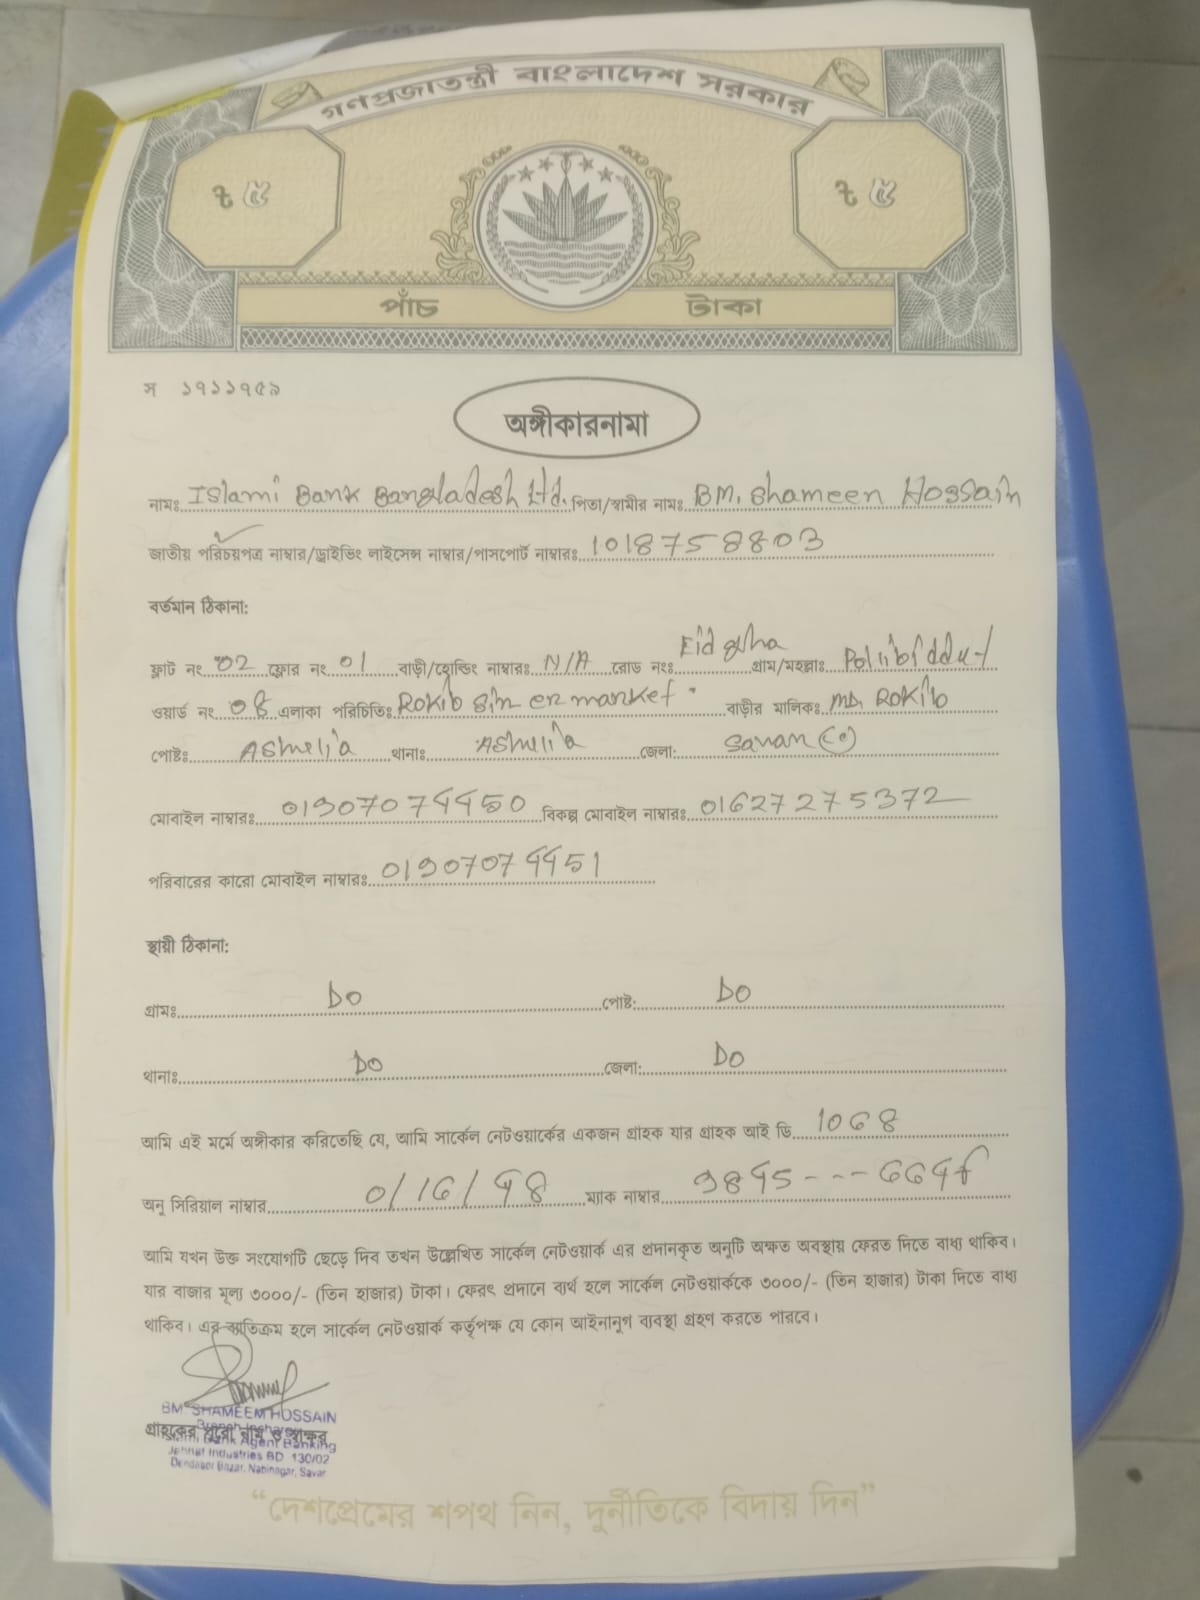 গণপ্রজাতন্ত্রী বাংলাদেশ সরকার
৳ ৫ ৳ ৫
পাঁচ টাকা
স ১৭১১৭৫৯
অঙ্গীকারনামা
নামঃ Islami Bank Bangladesh Ltd. পিতা/স্বামীর নামঃ BM. Shameen Hossain
জাতীয় পরিচয়পত্র নাম্বার/ড্রাইভিং লাইসেন্স নাম্বার/পাসপোর্ট নাম্বারঃ 1018758803
বর্তমান ঠিকানা:
ফ্লাট নং 02 ফ্লোর নং 01 বাড়ী/হোল্ডিং নাম্বারঃ N/A রোড নংঃ Eid gha গ্রাম/মহল্লাঃ Pollibiddut
ওয়ার্ড নং 08 এলাকা পরিচিতিঃ Rokib market বাড়ীর মালিকঃ MD. Rokib
পোষ্টঃ Ashulia থানাঃ Ashulia জেলা: Savar
মোবাইল নাম্বারঃ 01907074450 বিকল্প মোবাইল নাম্বারঃ 01627275372
পরিবারের কারো মোবাইল নাম্বারঃ 01907074451
স্থায়ী ঠিকানা:
গ্রামঃ DO পোষ্ট: DO
থানাঃ DO জেলা: DO
আমি এই মর্মে অঙ্গীকার করিতেছি যে, আমি সার্কেল নেটওয়ার্কের একজন গ্রাহক যার গ্রাহক আই ডি 1068
অনু সিরিয়াল নাম্বার 0/16/48 ম্যাক নাম্বার 9845---664f
আমি যখন উক্ত সংযোগটি ছেড়ে দিব তখন উল্লেখিত সার্কেল নেটওয়ার্ক এর প্রদানকৃত অনুটি অক্ষত অবস্থায় ফেরত দিতে বাধ্য থাকিব।
যার বাজার মূল্য ৩০০০/- (তিন হাজার) টাকা। ফেরৎ প্রদানে ব্যর্থ হলে সার্কেল নেটওয়ার্ককে ৩০০০/- (তিন হাজার) টাকা দিতে বাধ্য
থাকিব। এর ব্যতিক্রম হলে সার্কেল নেটওয়ার্ক কর্তৃপক্ষ যে কোন আইনানুগ ব্যবস্থা গ্রহণ করতে পারবে।
BM SHAMEEM HOSSAIN
গ্রাহকের পুরো নাম ও স্বাক্ষর
Bank Agent Banking
Industries BD 130/02
Dendabor Bazar, Nabinagar, Savar
“দেশপ্রেমের শপথ নিন, দুর্নীতিকে বিদায় দিন”